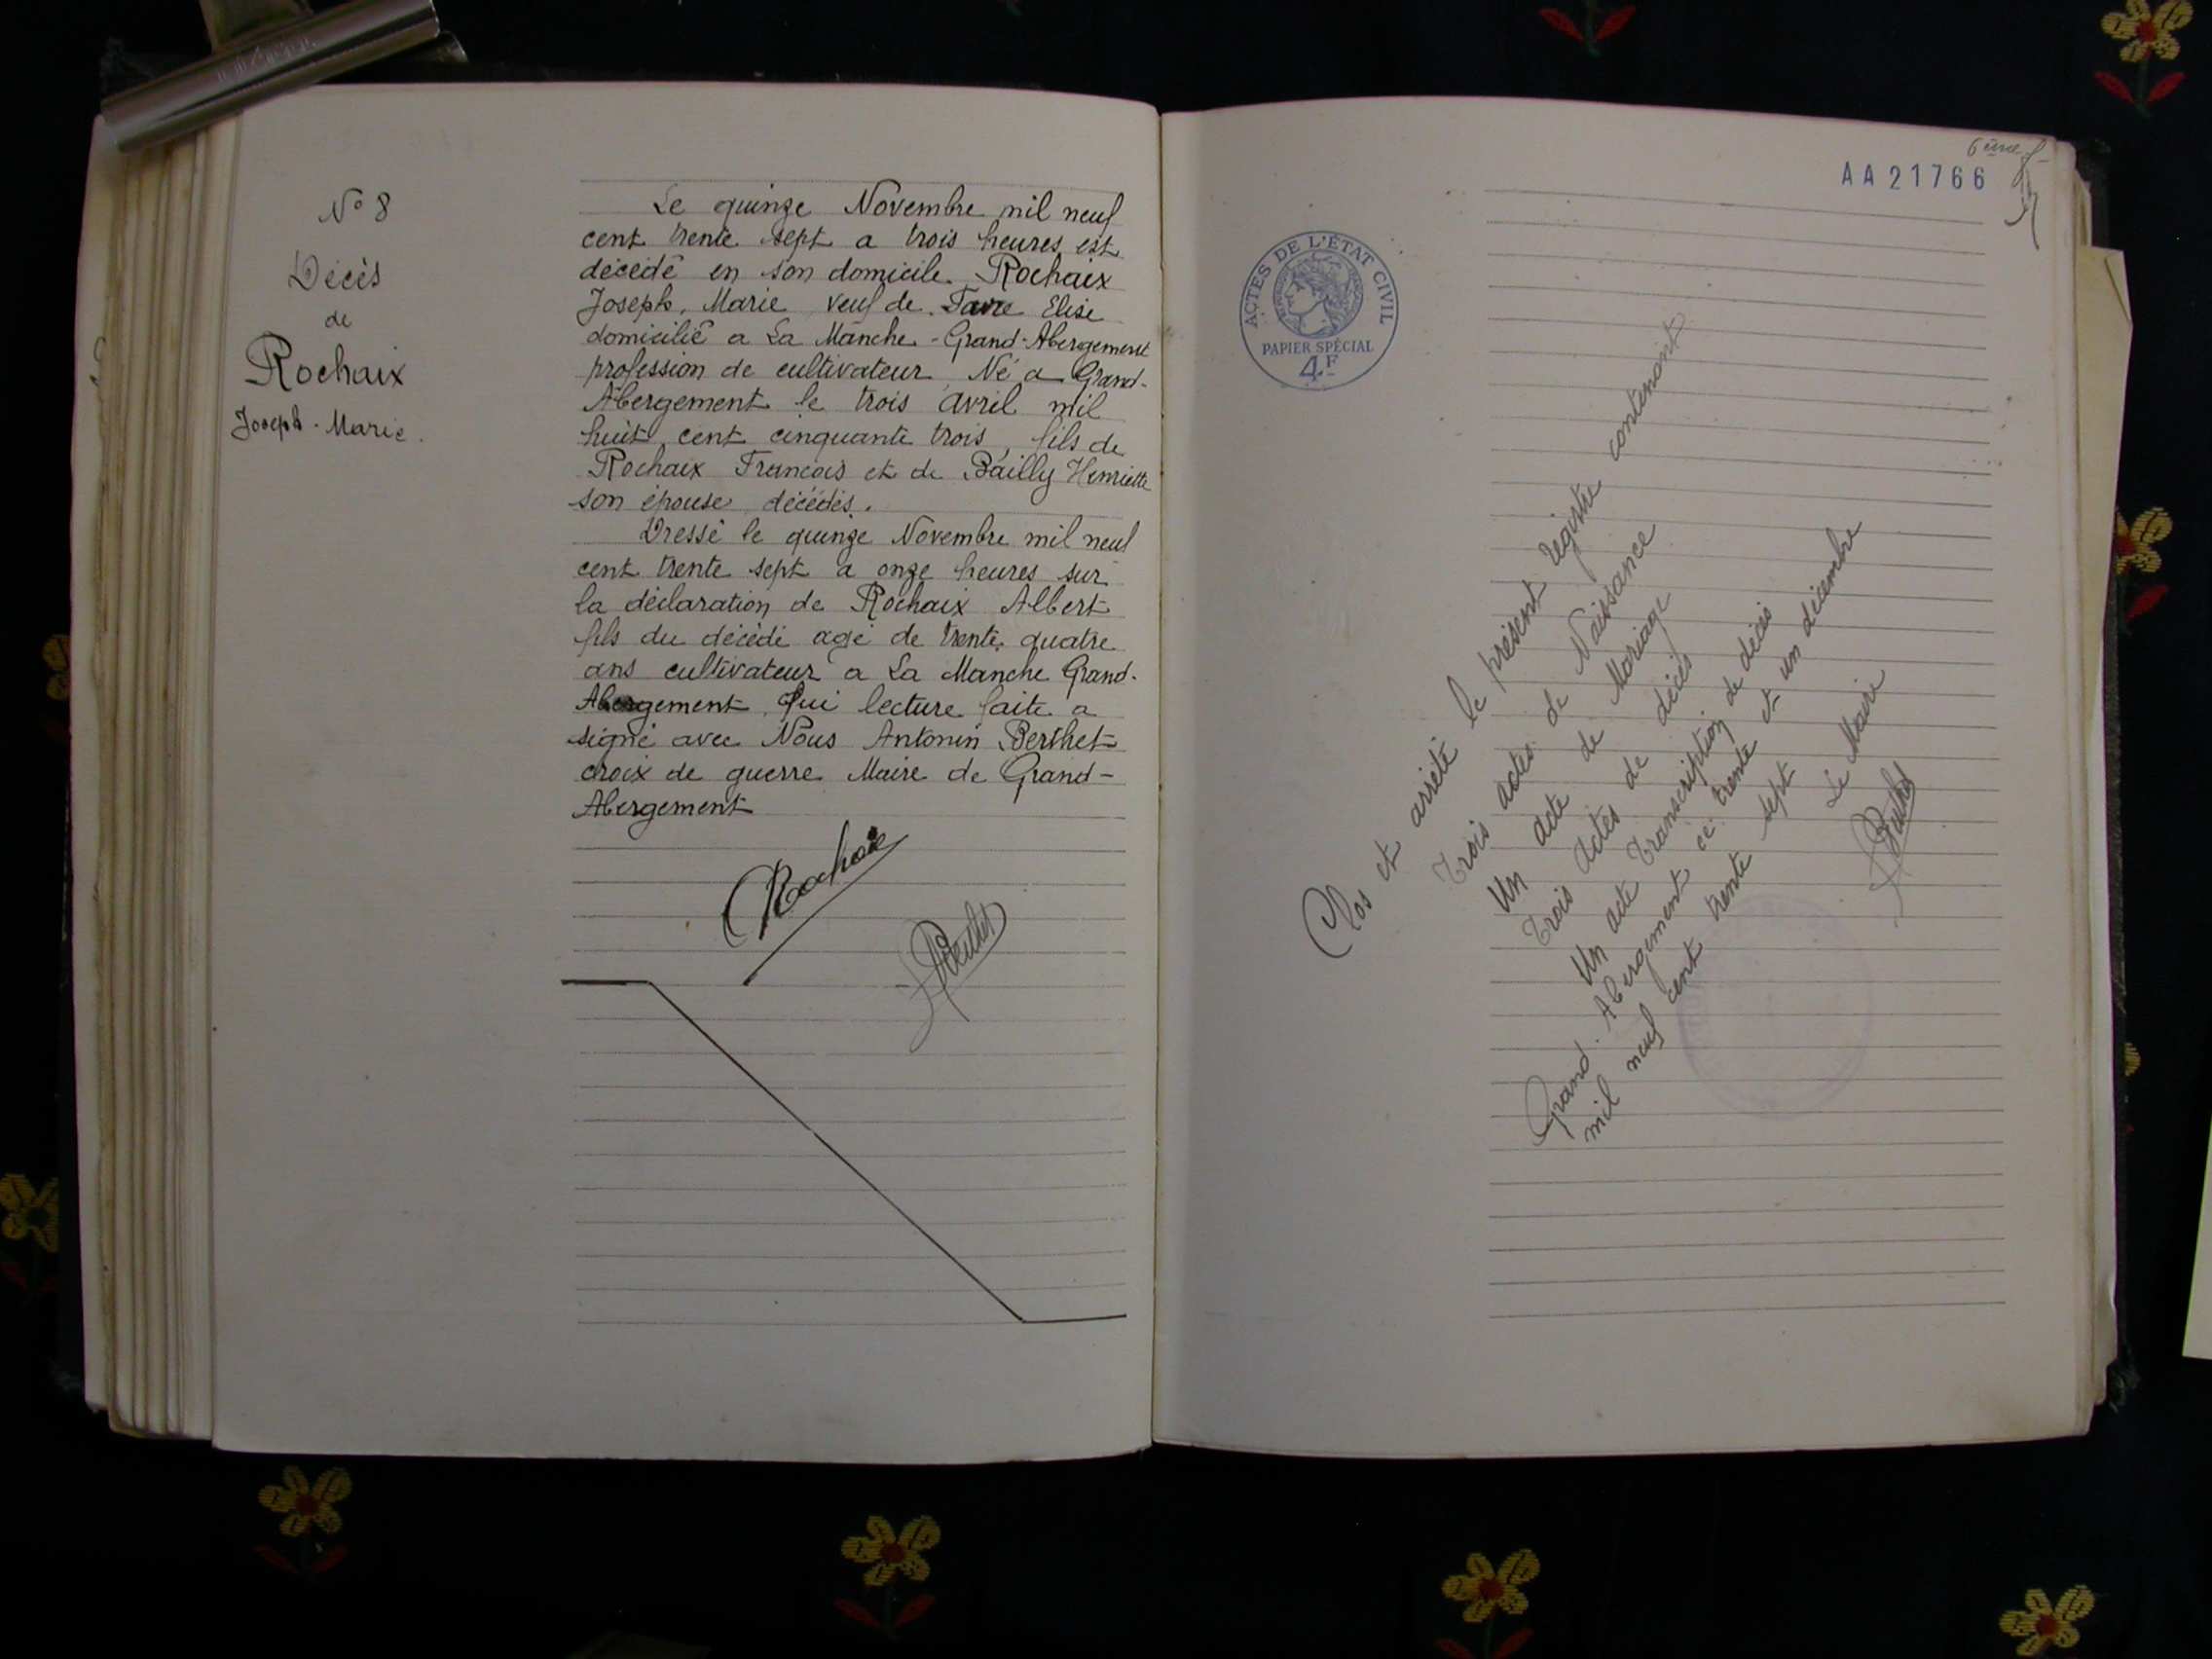 N° 8
Décès
de
Rochaix
Joseph-Marie.
Le quinze Novembre mil neuf
cent trente sept a trois heures est
décédé en son domicile Rochaix
Joseph, Marie veuf de Favre Elise
domicilié a La Manche-Grand-Abergement
profession de cultivateur Né a Grand-
Abergement le trois avril mil
huit cent cinquante trois, fils de
Rochaix Francois et de Bailly Henriette
son épouse décédés.
Dressé le quinze Novembre mil neuf
cent trente sept a onze heures sur
la déclaration de Rochaix Albert
fils du décédé agé de trente quatre
ans cultivateur a La Manche Grand-
Abergement Qui lecture faite a
signé avec Nous Antonin Berthet
croix de guerre Maire de Grand-
Abergement
Rochaix
Berthet
6ème f
AA21766
ACTES DE L'ÉTAT CIVIL
PAPIER SPÉCIAL
4F
Clos et arrêté le présent régistre contenant
Trois actes de Naissance
Un acte de Mariage
Trois actes de décès
Un acte Transcription de décès
Grand-Abergement ce trente et un décembre
mil neuf cent trente sept
Le Maire
Berthet